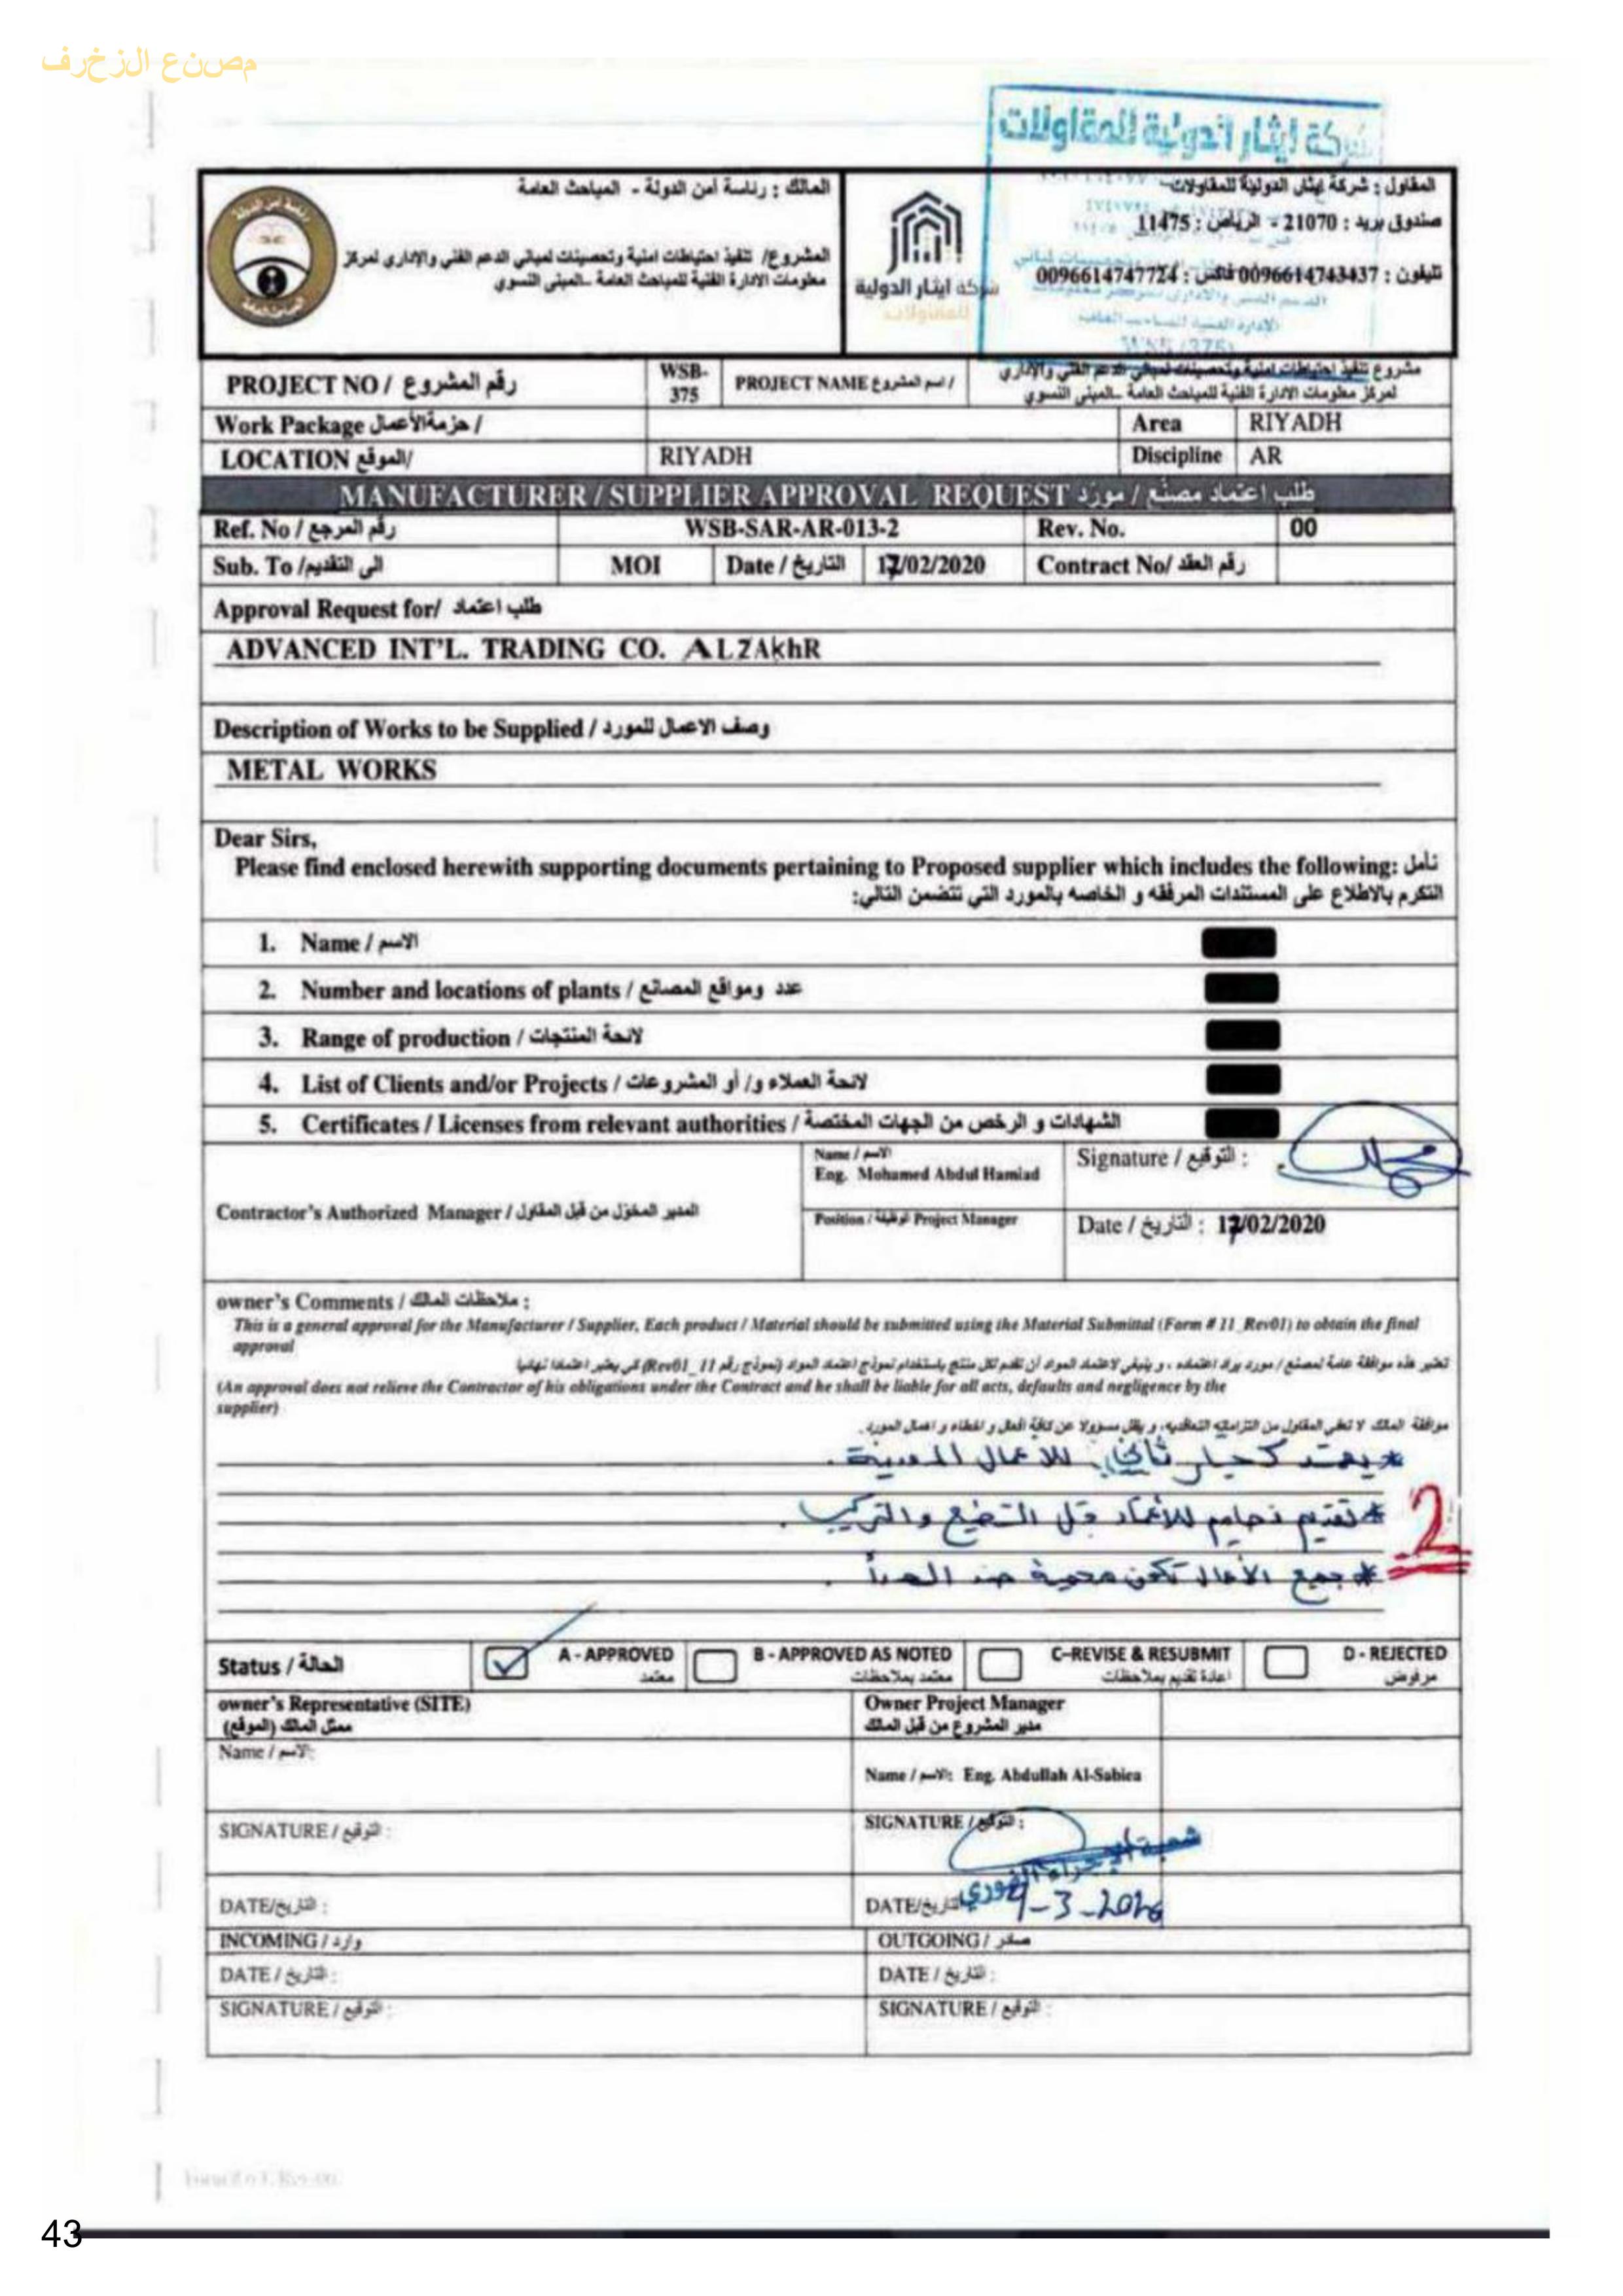 مصنع الزخرف
شركة إيثار الدولية للمقاولات
المالك : رئاسة أمن الدولة - المباحث العامة
المشروع/ تنفيذ احتياطات امنية وتحصينات لمباني الدعم الفني والإداري لمركز
معلومات الادارة الفنية للمباحث العامة -المبنى النسوي
شركة ايثار الدولية
للمقاولات
المقاول : شركة إيثار الدولية للمقاولات
صندوق بريد : 21070 - الرياض : 11475
تليفون : 0096614743437 فاكس : 0096614747724
PROJECT NO / رقم المشروع
WSB-375
PROJECT NAME اسم المشروع /
مشروع تنفيذ احتياطات امنية وتحصينات لمباني الدعم الفني والإداري
لمركز معلومات الادارة الفنية للمباحث العامة -المبنى النسوي
Work Package حزمة الأعمال /
Area RIYADH
LOCATION الموقع/ RIYADH
Discipline AR
MANUFACTURER / SUPPLIER APPROVAL REQUEST طلب اعتماد مصنّع / مورّد
Ref. No / رقم المرجع WSB-SAR-AR-013-2 Rev. No. 00
Sub. To /الى التقديم MOI Date / التاريخ 17/02/2020 Contract No/ رقم العقد
Approval Request for/ طلب اعتماد
ADVANCED INT'L. TRADING CO. ALZAkhR
Description of Works to be Supplied / وصف الاعمال للمورد
METAL WORKS
Dear Sirs,
Please find enclosed herewith supporting documents pertaining to Proposed supplier which includes the following: نأمل
التكرم بالاطلاع على المستندات المرفقه و الخاصه بالمورد التي تتضمن التالي:
1. Name / الاسم
2. Number and locations of plants / عدد ومواقع المصانع
3. Range of production / لائحة المنتجات
4. List of Clients and/or Projects / لائحة العملاء و/ أو المشروعات
5. Certificates / Licenses from relevant authorities / الشهادات و الرخص من الجهات المختصة
Contractor's Authorized Manager / المدير المخوّل من قبل المقاول
Name / الاسم
Eng. Mohamed Abdul Hamiad
Position / الوظيفة Project Manager
Signature / التوقيع :
Date / التاريخ : 17/02/2020
owner's Comments / ملاحظات المالك :
This is a general approval for the Manufacturer / Supplier, Each product / Material should be submitted using the Material Submittal (Form # 11_Rev01) to obtain the final
approval
تعتبر هذه موافقة عامة لمصنع / مورد يراد اعتماده ، و ينبغي لاعتماد المواد أن تقدم لكل منتج باستخدام نموذج اعتماد المواد (نموذج رقم 11_Rev01) كي يعتبر اعتمادا نهائيا
(An approval does not relieve the Contractor of his obligations under the Contract and he shall be liable for all acts, defaults and negligence by the
supplier)
موافقة المالك لا تعفي المقاول من التزاماته التعاقدية، و يظل مسؤولا عن كافة أفعال و اخطاء و اهمال المورد.
* يعتمد كخيار ثاني للاعمال المعدنية .
* تقديم نحاليم للأعتماد قبل التصنيع والتركيب .
2
* جميع الأعمال تكون محمية ضد الصدأ .
Status / الحالة
A - APPROVED
معتمد
B - APPROVED AS NOTED
معتمد بملاحظات
C-REVISE & RESUBMIT
اعادة تقديم بملاحظات
D - REJECTED
مرفوض
owner's Representative (SITE)
ممثل المالك (الموقع)
Owner Project Manager
مدير المشروع من قبل المالك
Name / الاسم:
Name / الاسم: Eng. Abdullah Al-Sabiea
SIGNATURE / التوقيع :
SIGNATURE / التوقيع :
DATE/التاريخ :
DATE/التاريخ 9-3-2020
INCOMING / وارد
OUTGOING / صادر
DATE / التاريخ :
DATE / التاريخ :
SIGNATURE / التوقيع :
SIGNATURE / التوقيع :
43